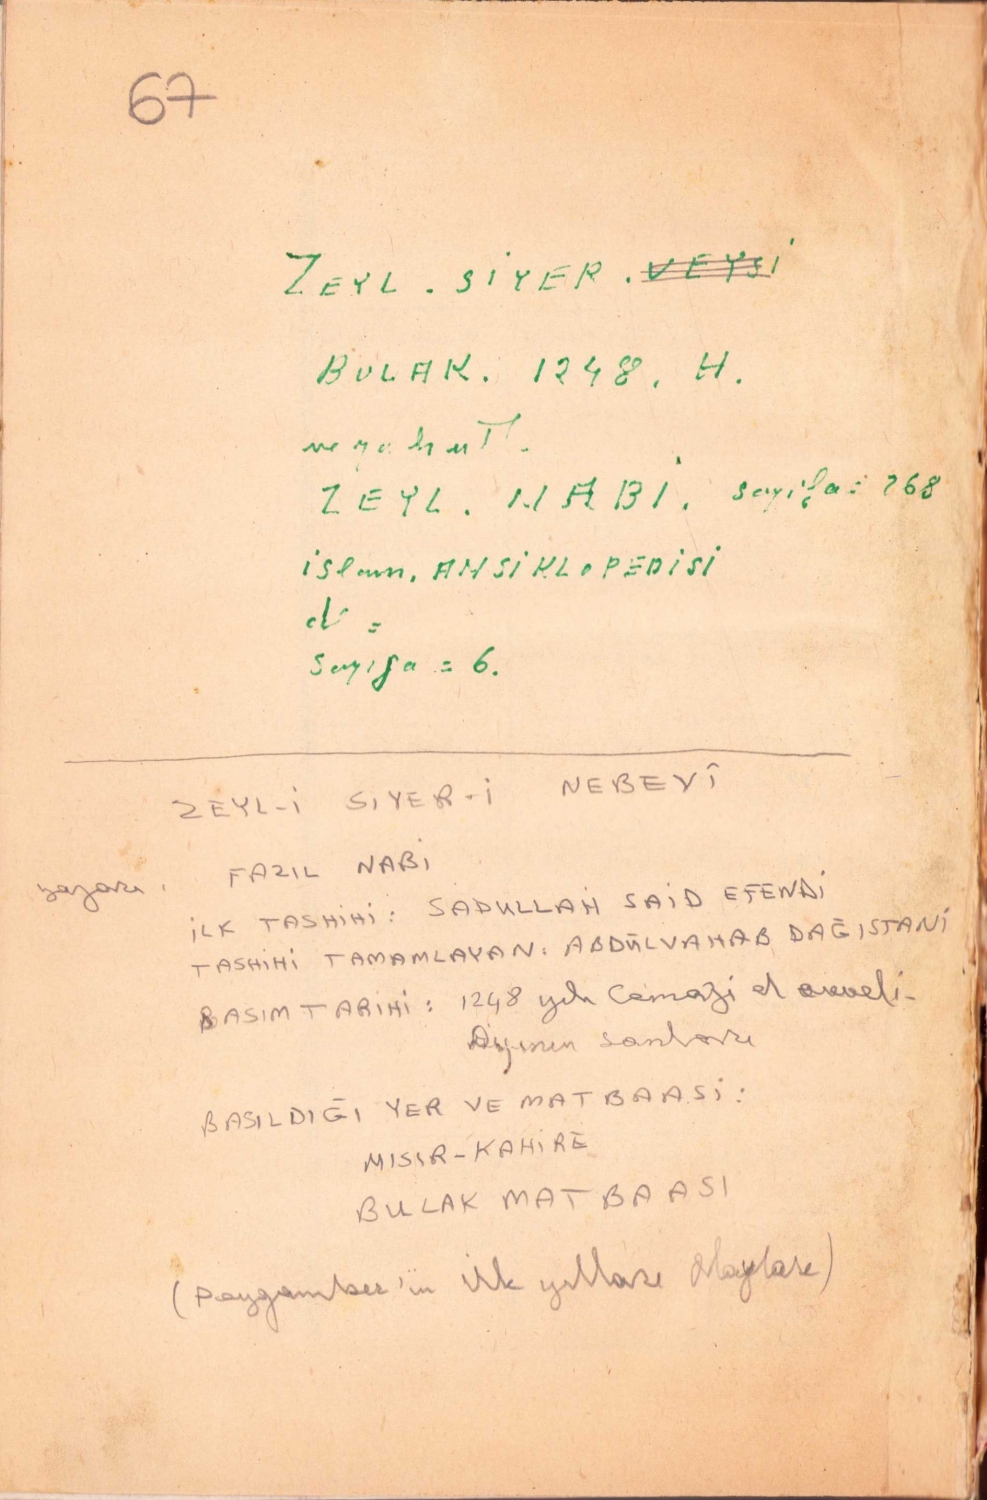 67
ZEYL. SİYER. VEYSİ
BULAK. 1248. H.
veyahut.
ZEYL. NABİ. sayifa = 268
islam. ANSİKLOPEDİSİ
d =
Sayıfa = 6.
ZEYL-İ SIYER-İ NEBEVÎ
yazarı. FAZIL NABİ
İLK TASHİHİ: SADULLAH SAİD EFENDİ
TASHİHİ TAMAMLAYAN: ABDÜLVAHAB DAĞISTANİ
BASIM TARİHİ: 1248 yılı Cemazi el evveli-
Ayının sonları
BASILDIĞI YER VE MATBAASİ:
MISIR-KAHİRE
BULAK MATBAASI
(Peygamber'in ilk yılları olayları)